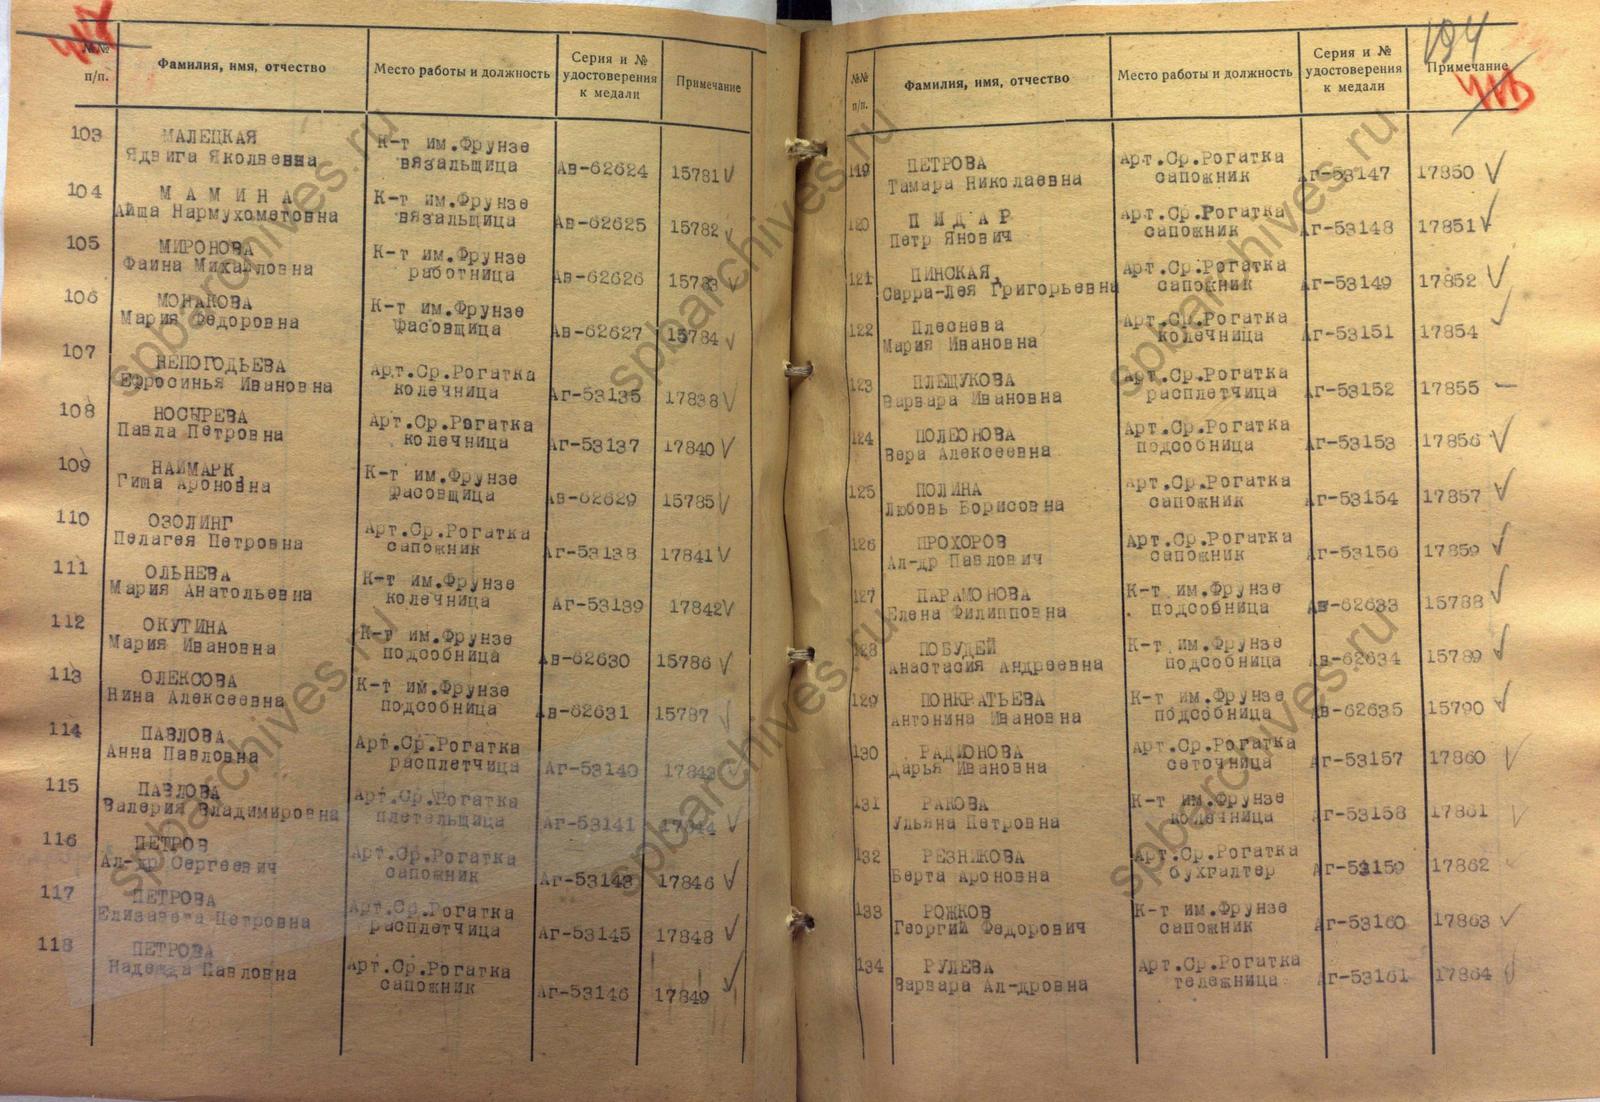 №№ п/п. Фамилия, имя, отчество Место работы и должность Серия и № удостоверения к медали Примечание
103 МАЛЕЦКАЯ К-т им.Фрунзе
Ядвига Яколвевна вязальщица Ав-62624 15781
104 МАМИНА К-т им.Фрунзе
Айша Нармухометовна вязальщица Ав-62625 15782
105 МИРОНОВА К-т им.Фрунзе
Фаина Михайловна работница Ав-62626 15783
106 МОНАКОВА К-т им.Фрунзе
Мария Федоровна Фасовщица Ав-62627 15784
107 НЕПОГОДЬЕВА Арт.Ср.Рогатка
Ефросинья Ивановна колечница Аг-53135 17838
108 НОСЫРЕВА Арт.Ср.Рогатка
Павла Петровна колечница Аг-53137 17840
109 НАЙМАРК К-т им.Фрунзе
Гиша Ароновна Фасовщица Ав-62629 15785
110 ОЗОЛИНГ Арт.Ср.Рогатка
Пелагея Петровна сапожник Аг-53138 17841
111 ОЛЬНЕВА К-т им.Фрунзе
Мария Анатольевна колечница Аг-53139 17842
112 ОКУТИНА К-т им.Фрунзе
Мария Ивановна подсобница Ав-62630 15786
113 ОЛЕКСОВА К-т им.Фрунзе
Нина Алексеевна подсобница Ав-62631 15787
114 ПАВЛОВА Арт.Ср.Рогатка
Анна Павловна расплетчица Аг-53140 17843
115 ПАВЛОВА Арт.Ср.Рогатка
Валерия Владимировна плетельщица Аг-53141 17844
116 ПЕТРОВ Арт.Ср.Рогатка
Ал-др Сергеевич сапожник Аг-53143 17846
117 ПЕТРОВА Арт.Ср.Рогатка
Елизавета Петровна расплетчица Аг-53145 17848
118 ПЕТРОВА Арт.Ср.Рогатка
Надежда Павловна сапожник Аг-53146 17849
194
№№ п/п. Фамилия, имя, отчество Место работы и должность Серия и № удостоверения к медали Примечание
119 ПЕТРОВА Арт.Ср.Рогатка
Тамара Николаевна сапожник Аг-53147 17850
120 ПИДАР Арт.Ср.Рогатка
Петр Янович сапожник Аг-53148 17851
121 ПИНСКАЯ Арт.Ср.Рогатка
Сарра-Лея Григорьевна сапожник Аг-53149 17852
122 Плеснева Арт.Ср.Рогатка
Мария Ивановна колечница Аг-53151 17854
123 ПЛЕЩУКОВА Арт.Ср.Рогатка
Варвара Ивановна расплетчица Аг-53152 17855 —
124 ПОЛЕОНОВА Арт.Ср.Рогатка
Вера Алексеевна подсобница Аг-53153 17856
125 ПОЛИНА Арт.Ср.Рогатка
Любовь Борисовна сапожник Аг-53154 17857
126 ПРОХОРОВ Арт.Ср.Рогатка
Ал-др Павлович сапожник Аг-53156 17859
127 ПАРАМОНОВА К-т им.Фрунзе
Елена Филипповна подсобница Ав-62633 15788
128 ПОБУДЕЙ К-т им.Фрунзе
Анастасия Андреевна подсобница Ав-62634 15789
129 ПОНКРАТЬЕВА К-т им.Фрунзе
Антонина Ивановна подсобница Ав-62635 15790
130 РАДИОНОВА Арт.Ср.Рогатка
Дарья Ивановна сеточница Аг-53157 17860
131 РАКОВА К-т им.Фрунзе
Ульяна Петровна колечница Аг-53158 17861
132 РЕЗНИКОВА Арт.Ср.Рогатка
Берта Ароновна бухгалтер Аг-53159 17862
133 РОЖКОВ К-т им.Фрунзе
Георгий Федорович сапожник Аг-53160 17863
134 РУЛЕВА Арт.Ср.Рогатка
Варвара Ал-дровна тележница Аг-53161 17864
spbarchives.ru
spbarchives.ru
spbarchives.ru
spbarchives.ru
spbarchives.ru
spbarchives.ru